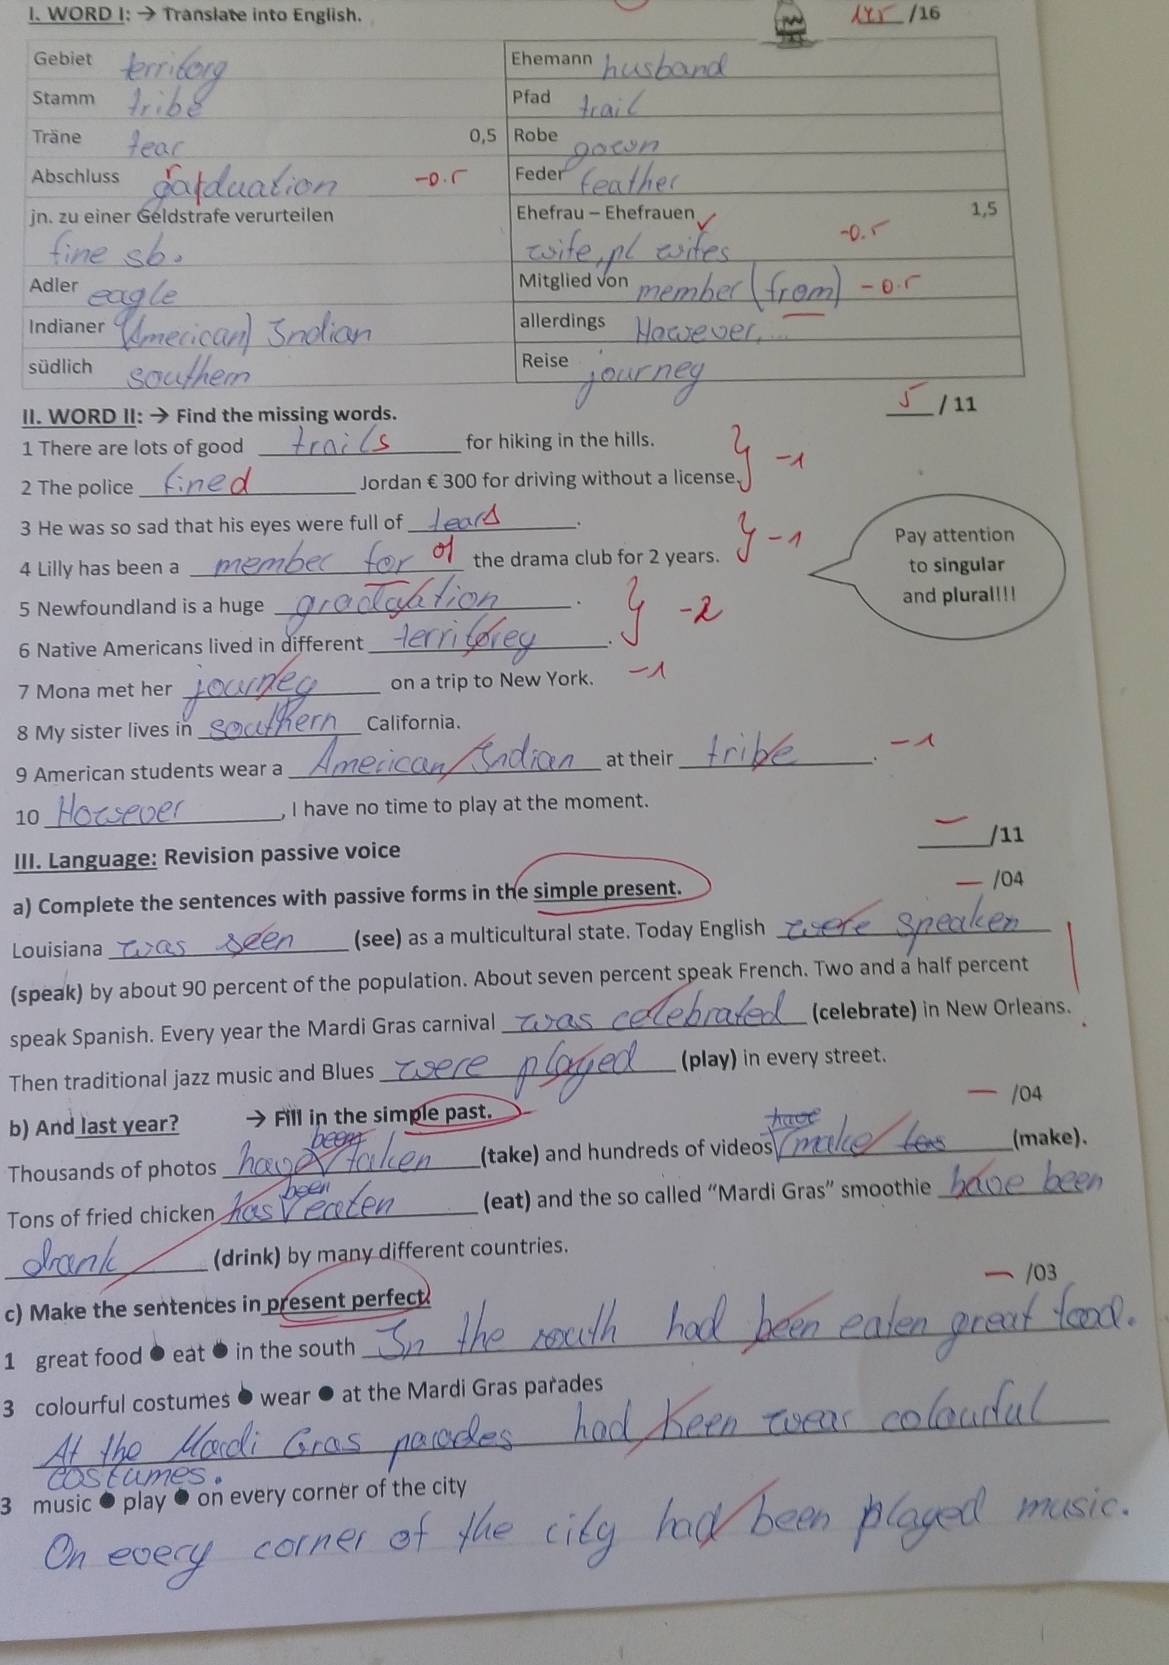 I. WORD I: → Translate into English. /16
Gebiet territorg Ehemann husband
Stamm tribe Pfad trail
Träne tear 0,5 Robe gown
Abschluss garduation r -0.5 Feder feather
jn. zu einer Geldstrafe verurteilen Ehefrau – Ehefrauen 1,5
fine sb. wife, pl wifes -0.5
Adler eagle Mitglied von member (from) -0.5
Indianer (American) Indian allerdings However,...
südlich southern Reise journey
II. WORD II: → Find the missing words. 5 / 11
1 There are lots of good trails for hiking in the hills.
2 The police fined Jordan € 300 for driving without a license. -1
3 He was so sad that his eyes were full of tears.
4 Lilly has been a member for of the drama club for 2 years. -1
Pay attention
to singular
and plural!!!
5 Newfoundland is a huge graduation. -2
6 Native Americans lived in different territorey.
7 Mona met her journey on a trip to New York. -1
8 My sister lives in southern California.
9 American students wear a American Indian at their tribe. -1
10 However, I have no time to play at the moment.
III. Language: Revision passive voice – /11
a) Complete the sentences with passive forms in the simple present. – /04
Louisiana was seen (see) as a multicultural state. Today English were speaken
(speak) by about 90 percent of the population. About seven percent speak French. Two and a half percent
speak Spanish. Every year the Mardi Gras carnival was celebrated (celebrate) in New Orleans.
Then traditional jazz music and Blues were played (play) in every street.
b) And last year? → Fill in the simple past. – /04
Thousands of photos have been taken (take) and hundreds of videos have make (make).
Tons of fried chicken has been eaten (eat) and the so called “Mardi Gras” smoothie have been
drank (drink) by many different countries.
c) Make the sentences in present perfect. – /03
1 great food ● eat ● in the south In the south had been eaten great food.
3 colourful costumes ● wear ● at the Mardi Gras parades
At the Mardi Gras parades had been wear colourful
costumes.
3 music ● play ● on every corner of the city
On every corner of the city had been played music.